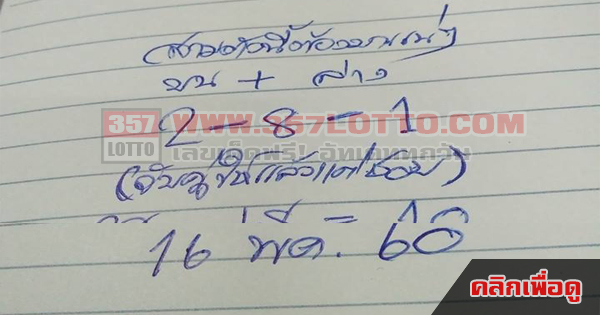 สามตัวนี้ต้องมาแน่ๆ
บน + ล่าง
2 - 8 - 1
357 LOTTO
WWW.357LOTTO.COM
เลขเด็ดฟรี! อัพเดททุกวัน
(จับคู่ให้แล้วแต่ชอบ)
16 พ.ย. 60
คลิกเพื่อดู